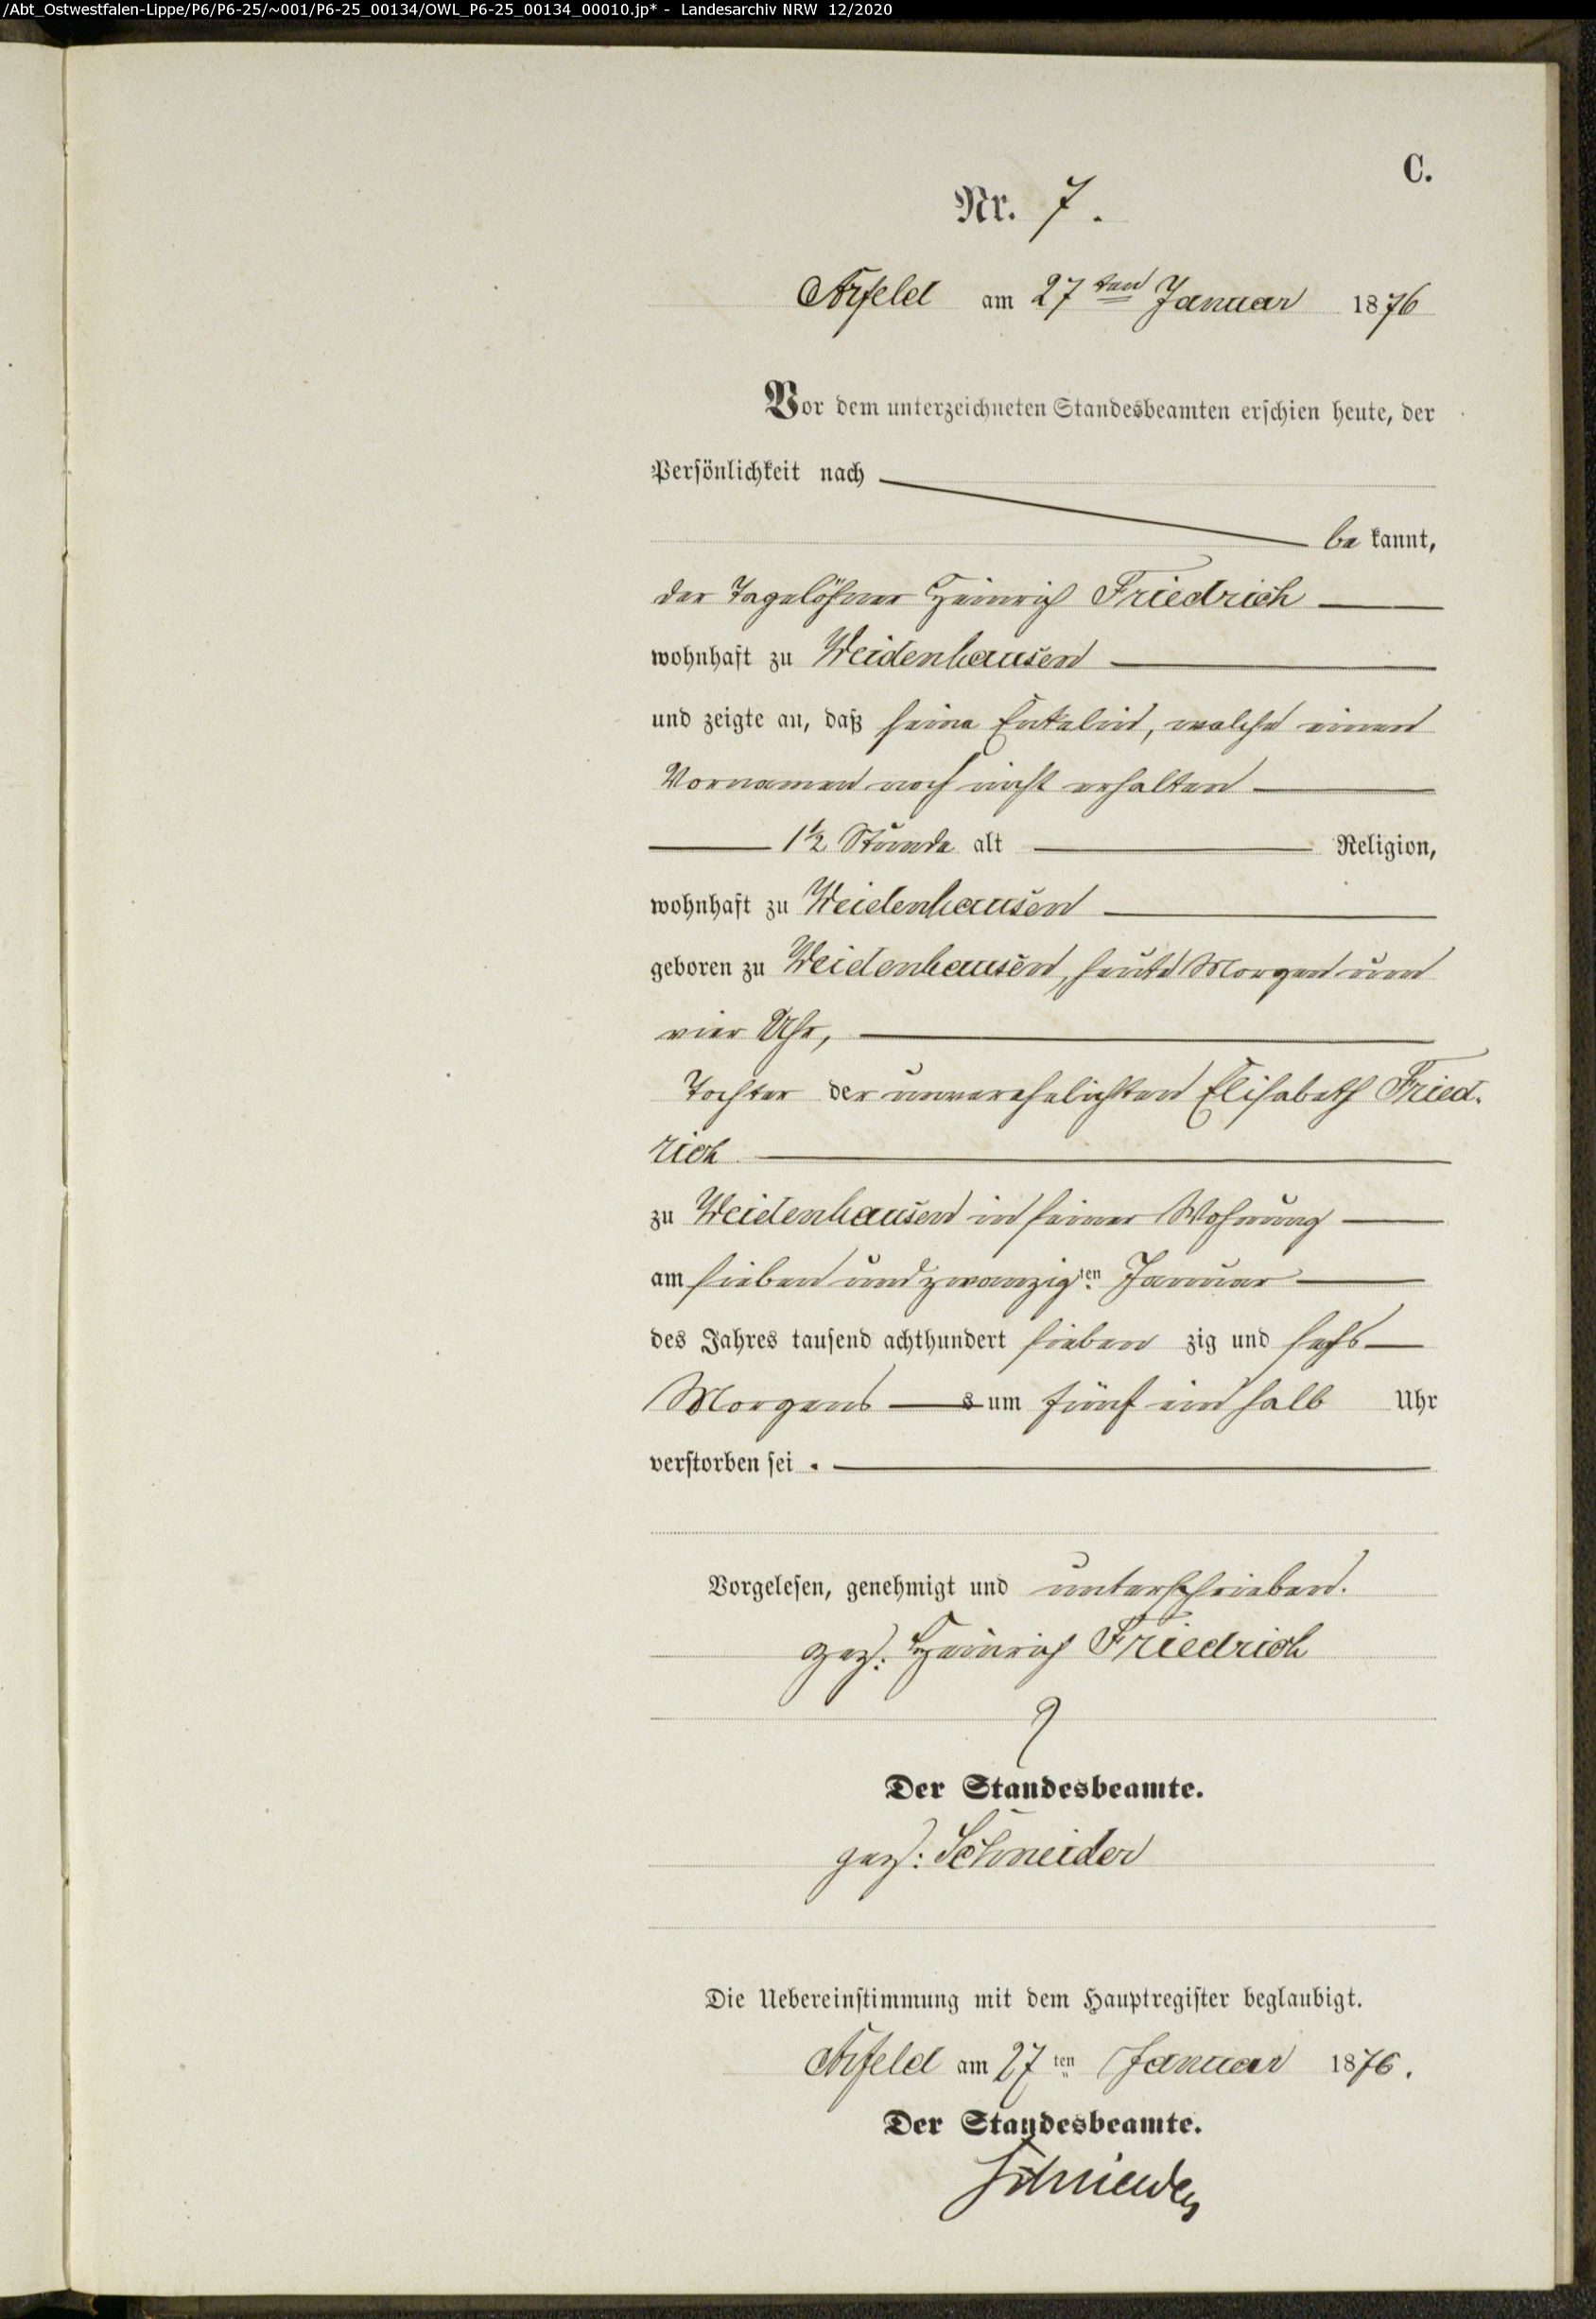 /Abt_Ostwestfalen-Lippe/P6/P6-25/~001/P6-25_00134/OWL_P6-25_00134_00010.jp* - Landesarchiv NRW 12/2020
C.
Nr. 7.
Arfeld am 27ten Januar 1876
Vor dem unterzeichneten Standesbeamten erschien heute, der
Persönlichkeit nach
be kannt,
der Tagelöhner Heinrich Friedrich
wohnhaft zu Weidenhausen
und zeigte an, daß seine Enkelin, welche einen
Vornamen noch nicht erhalten
1½ Stunde alt Religion,
wohnhaft zu Weidenhausen
geboren zu Weidenhausen, heute Morgen um
vier Uhr,
Tochter der unverehelichten Elisabeth Fried-
rich
zu Weidenhausen in seiner Wohnung
am sieben und zwanzigten Januar
des Jahres tausend achthundert sieben zig und sechs
Morgens s um fünf ein halb Uhr
verstorben sei.
Vorgelesen, genehmigt und unterschrieben.
gez. Heinrich Friedrich
Der Standesbeamte.
gez: Schneider
Die Uebereinstimmung mit dem Hauptregister beglaubigt.
Arfeld am 27ten Januar 1876.
Der Standesbeamte.
Schneider